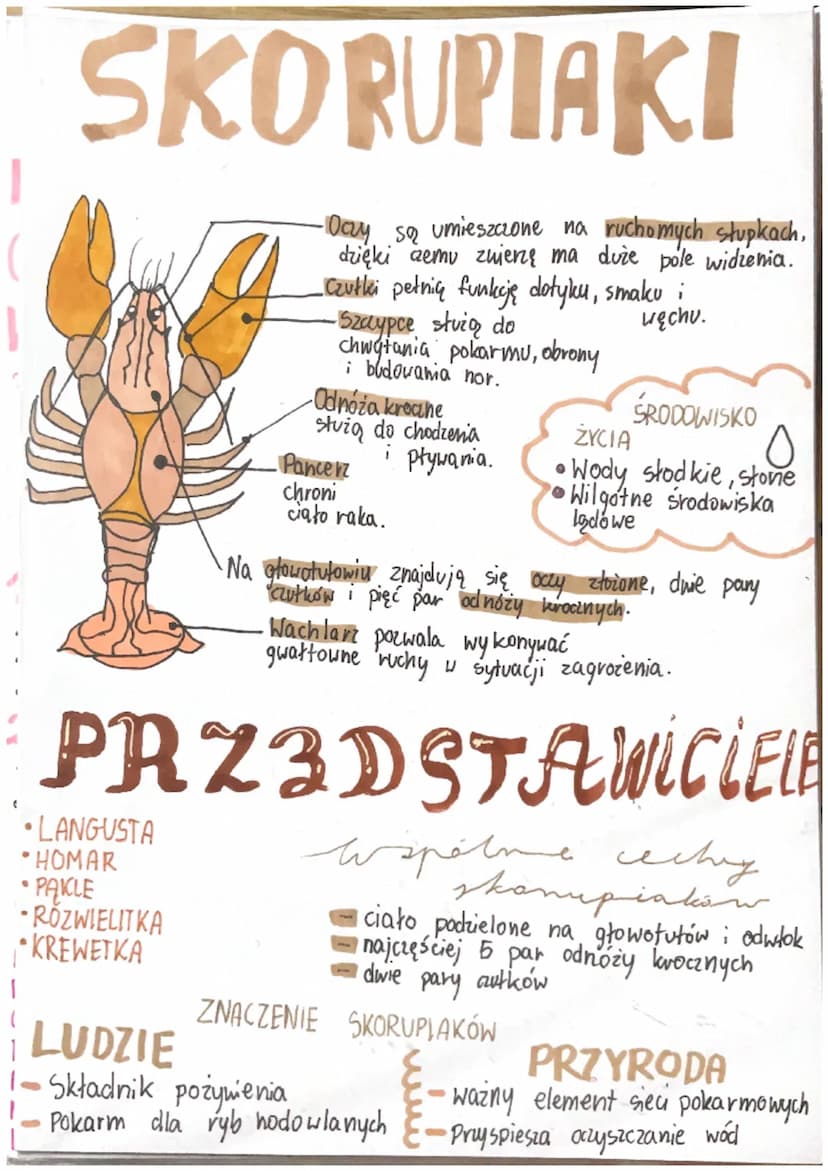 SKORUPIAKI
Oczy są umieszczone na ruchomych słupkach,
dzięki czemu zwierzę ma duże pole widzenia.
Czułki pełnią funkcję dotyku, smaku i
węchu.
Szczypce służą do
chwytania pokarmu, obrony
i budowania nor.
Odnóża kroczne
służą do chodzenia
i pływania.
Pancerz
chroni
ciało raka.
ŚRODOWISKO
ŻYCIA
• Wody słodkie, słone
• Wilgotne środowiska
lądowe
Na głowotułowiu znajdują się oczy złożone, dwie pary
czułków i pięć par odnóży krocznych.
Wachlarz pozwala wykonywać
gwałtowne ruchy w sytuacji zagrożenia.
PRZEDSTAWICIELE
• LANGUSTA
• HOMAR
• PĄKLE
• ROZWIELITKA
• KREWETKA
Wspólne cechy
skorupiaków
- ciało podzielone na głowotułów i odwłok
- najczęściej 5 par odnóży krocznych
- dwie pary czułków
ZNACZENIE SKORUPIAKÓW
LUDZIE
- Składnik pożywienia
- Pokarm dla ryb hodowlanych
PRZYRODA
- ważny element sieci pokarmowych
- Przyspiesza oczyszczanie wód